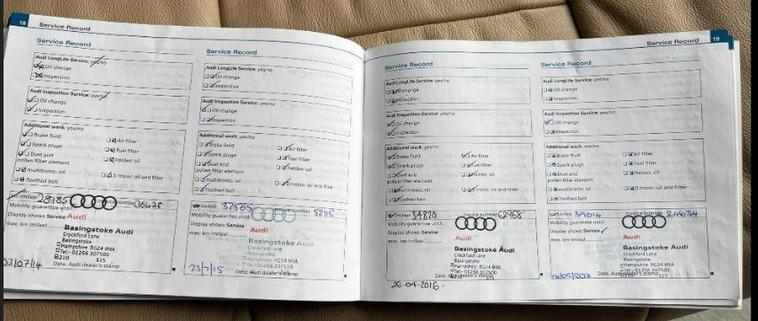 18
Service Record
Service Record
Audi LongLife Service: yes/no
Oil change
Inspection
Audi Inspection Service: yes/no
Oil change
Inspection
Additional work: yes/no
Brake fluid
Air filter
Spark plugs
Fuel filter
Dust and
pollen filter element
Haldex: oil
multitronic: oil
S tronic: oil and filter
Toothed belt
28185
Mobility guarantee until:
Display shows Service
Audi
max. km (miles)
Basingstoke Audi
Crockford Lane
Basingstoke
Hampshire RG24 8NA
Tel:-01256 307500
03/07/14
Date: Audi dealer's stamp
Service Record
Audi LongLife Service: yes/no
Oil change
Inspection
Audi Inspection Service: yes/no
Oil change
Inspection
Additional work: yes/no
Brake fluid
Air filter
Spark plugs
Fuel filter
Dust and
pollen filter element
Haldex: oil
multitronic: oil
S tronic: oil and filter
Toothed belt
32565
Mobility guarantee until:
Display shows Service
Audi
max. km (miles)
Basingstoke Audi
Crockford Lane
Basingstoke
Hampshire RG24 8NA
Tel:-01256 307500
23/7/15
Date: Audi dealer's stamp
19
Service Record
Service Record
Audi LongLife Service: yes/no
Oil change
Inspection
Audi Inspection Service: yes/no
Oil change
Inspection
Additional work: yes/no
Brake fluid
Air filter
Spark plugs
Fuel filter
Dust and
pollen filter element
Haldex: oil
multitronic: oil
S tronic: oil and filter
Toothed belt
34820
62968
Mobility guarantee until:
Display shows Service
Audi
max. km (miles)
Basingstoke Audi
Crockford Lane
Basingstoke
Hampshire RG24 8NA
Tel:-01256 307500
Date: Audi dealer's stamp
-04-2016
Service Record
Audi LongLife Service: yes/no
Oil change
Inspection
Audi Inspection Service: yes/no
Oil change
Inspection
Additional work: yes/no
Brake fluid
Air filter
Spark plugs
Fuel filter
Dust and
pollen filter element
Haldex: oil
multitronic: oil
S tronic: oil and filter
Toothed belt
Mobility guarantee until:
Display shows Service
Audi
max. km (miles)
Basingstoke Audi
Crockford Lane
Basingstoke
Hampshire RG24 8NA
Tel:-01256 307500
Date: Audi dealer's stamp